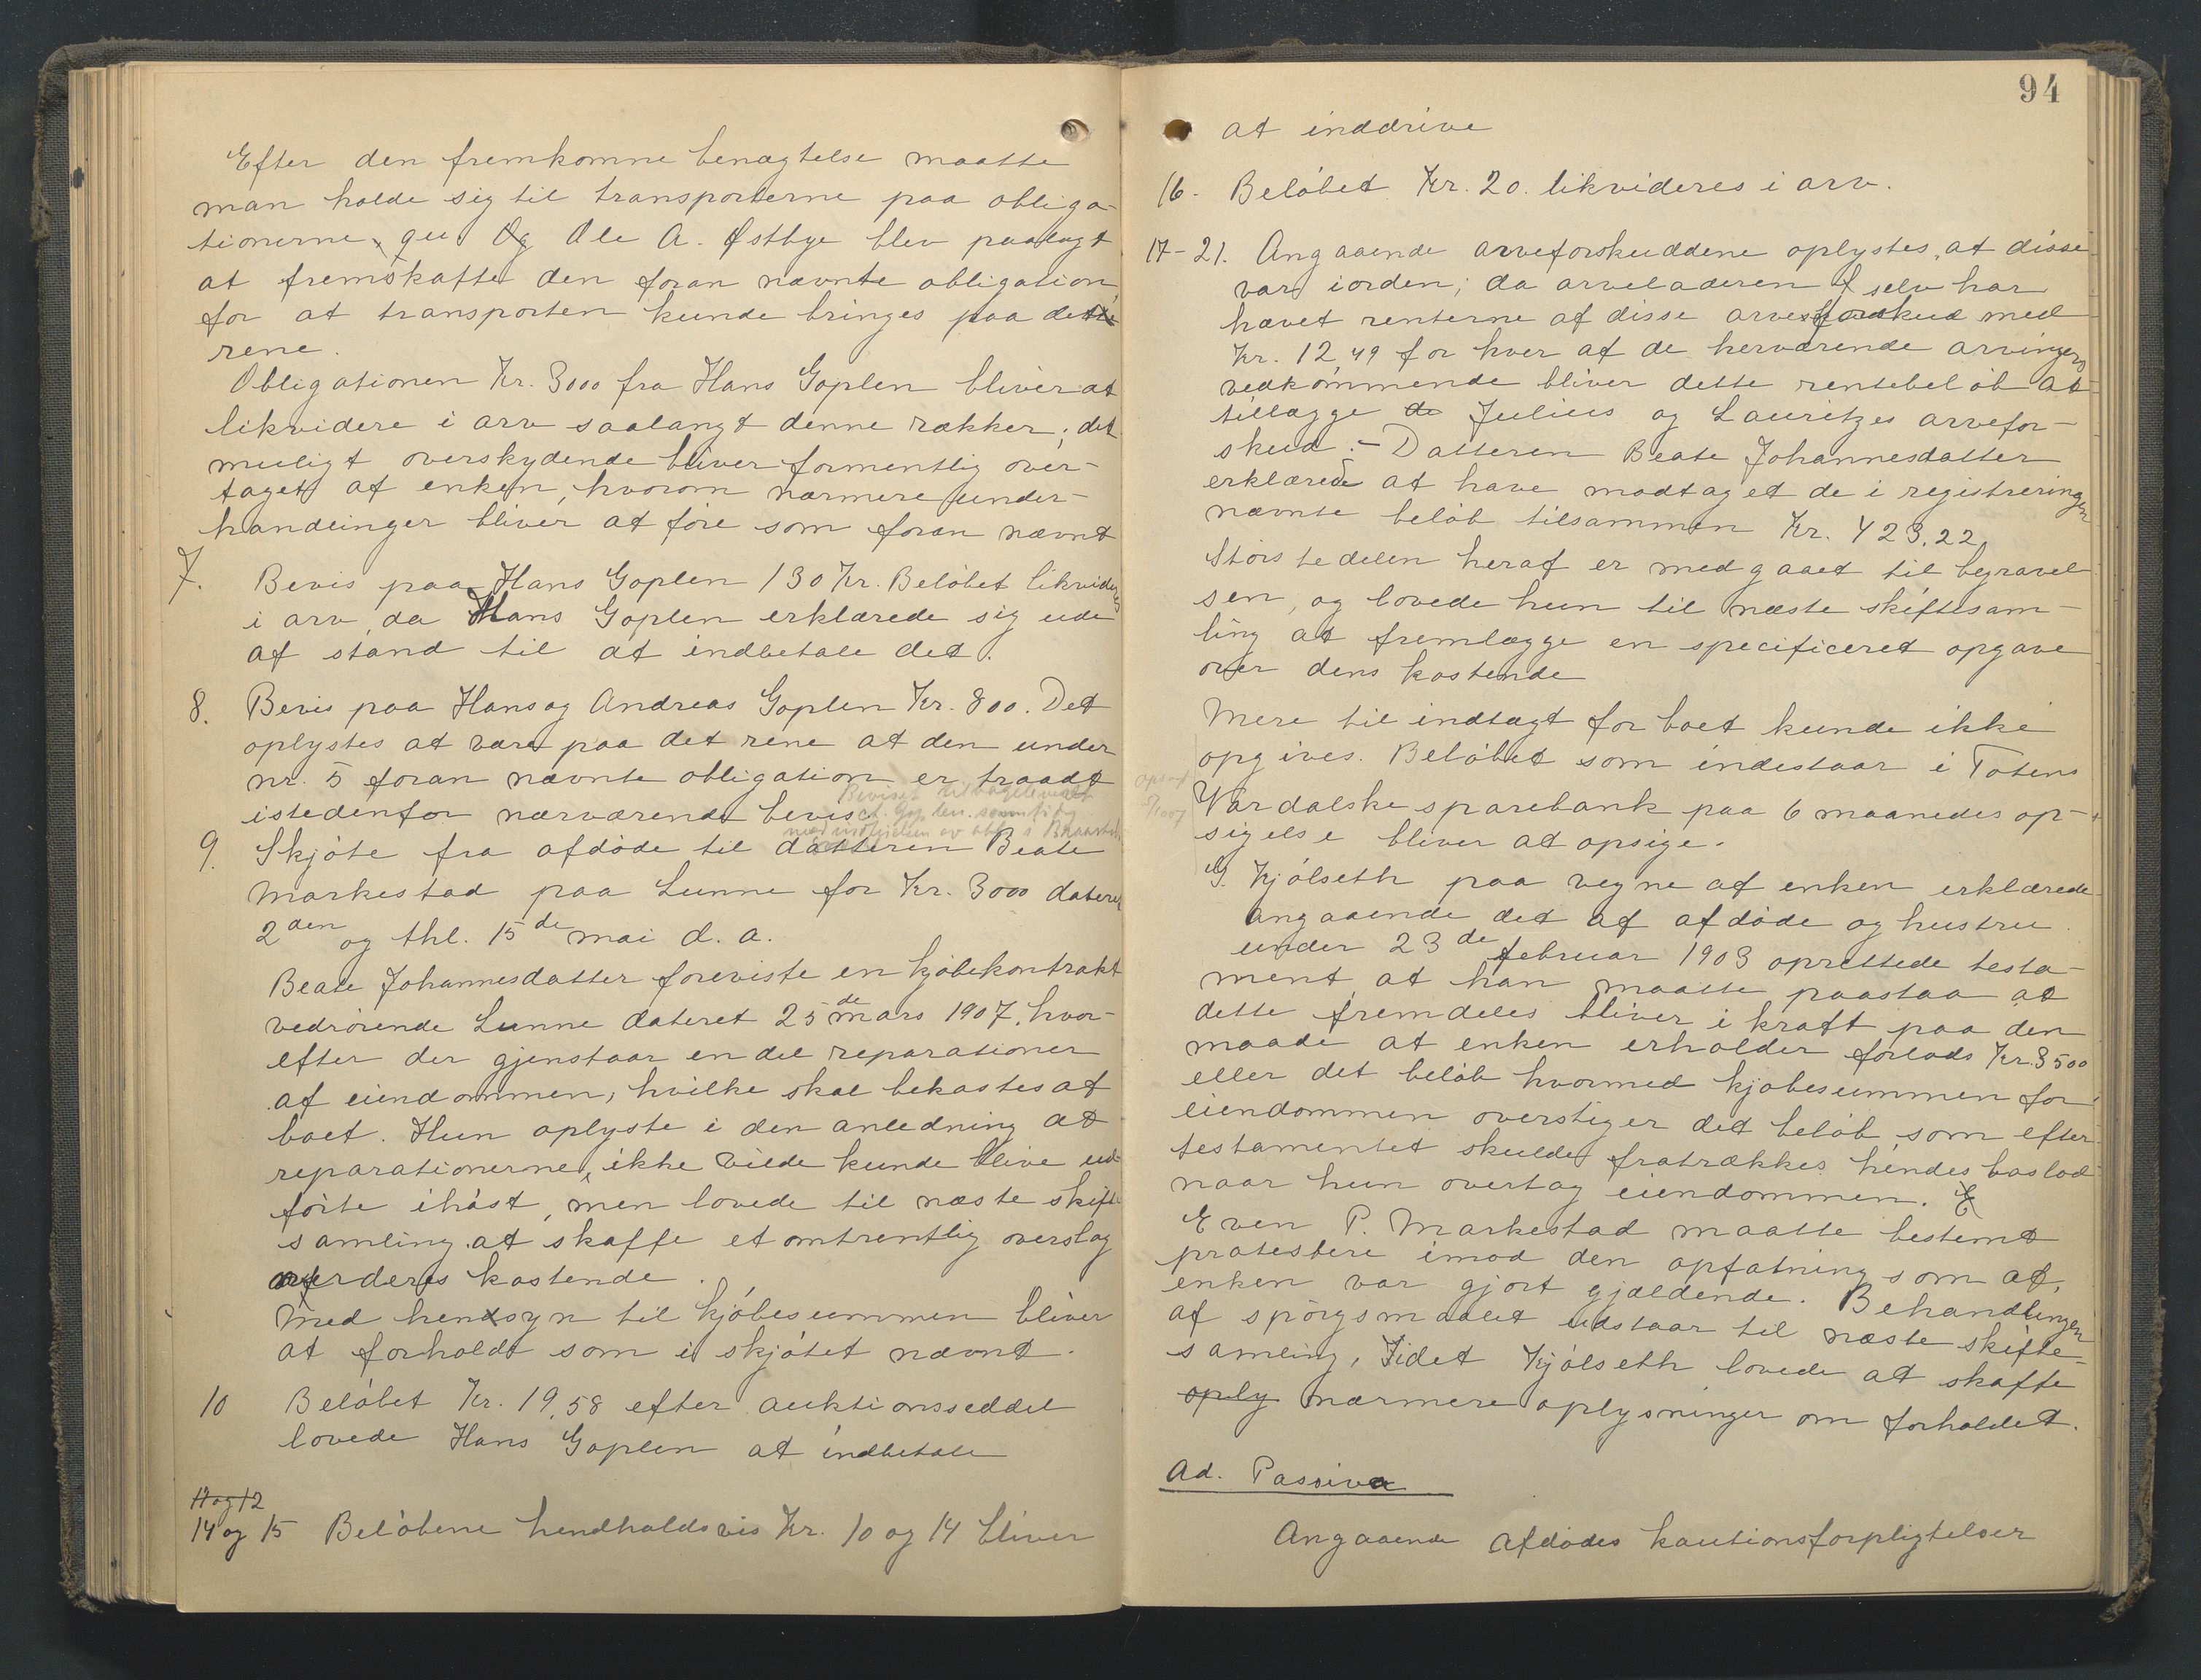 Efter den fremkomne benægtelse maatte
man holde sig til transporterne paa obliga-
tionerne, Og Ole A. Østbye blev paalagt
at fremskaffe den foran nævnte obligation,
for at transporten kunde bringes paa dette
rene.
Obligationen Kr. 3000 fra Hans Goplen bliver at
likvidere i arv saalangt denne rækker; det
muligt overskydende bliver formentlig over-
taget af enken, hvorom nærmere under-
handlinger bliver at føre som foran nævnt
7. Bevis paa Hans Goplen 130 Kr. Beløbet likvideres
i arv, da Hans Goplen erklærede sig ude
af stand til at indbetale det.
8. Bevis paa Hans og Andreas Goplen Kr. 800. Det
oplystes at være paa det rene at den under
nr. 5 foran nævnte obligation er traadt
Beviset tilbageleveret
istedenfor nærværende bevis
9. Skjøte fra afdøde til datteren Beate
Markestad paa Lunne for Kr. 3000 dateret
2den og thl. 15de mai d. a.
Beate Johannesdatter foreviste en kjøbekontrakt
vedrørende Lunne dateret 25de mars 1907, hvor-
efter der gjenstaar en del reparationer
af eiendommen, hvilke skal bekostes af
boet. Hun oplyste i den anledning at
reparationerne, ikke vilde kunde blive ud-
førte ihøst, men lovede til næste skifte-
samling at skaffe et omtrentlig overslag
over deres kostende.
Med hensyn til kjøbesummen bliver
at forholdt som i skjøtet nævnt.
10 Beløbet Kr. 19,58 efter auktionsseddel
lovede Hans Goplen at indbetale
11 og 12
14 og 15 Beløbene hendholdsvis Kr. 10 og 14 bliver
94
at inddrive
16. Beløbet Kr. 20. likvideres i arv.
17-21. Angaaende arveforskuddene oplystes, at disse
var iorden; da arveladeren selv har
hævet renterne af disse arveforskud med
Kr. 12,49 for hver af de herværende arvingers
vedkommende bliver dette rentebeløb at
tillægge de Julius og Lauritzes arvefor-
skud. - Datteren Beate Johannesdatter
erklærede at have modtaget de i registreringen
nævnte beløb tilsammen Kr. 423,22,
Størstedelen heraf er medgaaet til begravel-
sen, og lovede hun til næste skiftesam-
ling at fremlægge en specificeret opgave
over dens kostende
Mere til indtægt for boet kunde ikke
opgives. Beløbet som indestaar i Totens
Vardalske sparebank paa 6 maanedes op-
sigelse bliver at opsige.
G. Kjølseth paa vegne af enken erklærede
angaaende det af afdøde og hustru
under 23de februar 1903 oprettede testa-
ment, at han maatte paastaa at
dette fremdeles bliver i kraft paa den
maade at enken erholder forlods Kr. 3500
eller det beløb hvormed kjøbesummen for
eiendommen overstiger det beløb, som efter
testamentet skulde fratrækkes hendes boslod
naar hun overtog eiendommen. E
Even P. Markestad maatte bestemt
protestere imod den opfatning som af
enken var gjort gjældende. Behandlingen
af spørgsmaalet udstaar til næste skifte-
samling, idet Kjølseth lovede at skaffe
oply nærmere oplysninger om forholdet.
Ad. Passiva
Angaaende afdødes kautionsforpligtelser